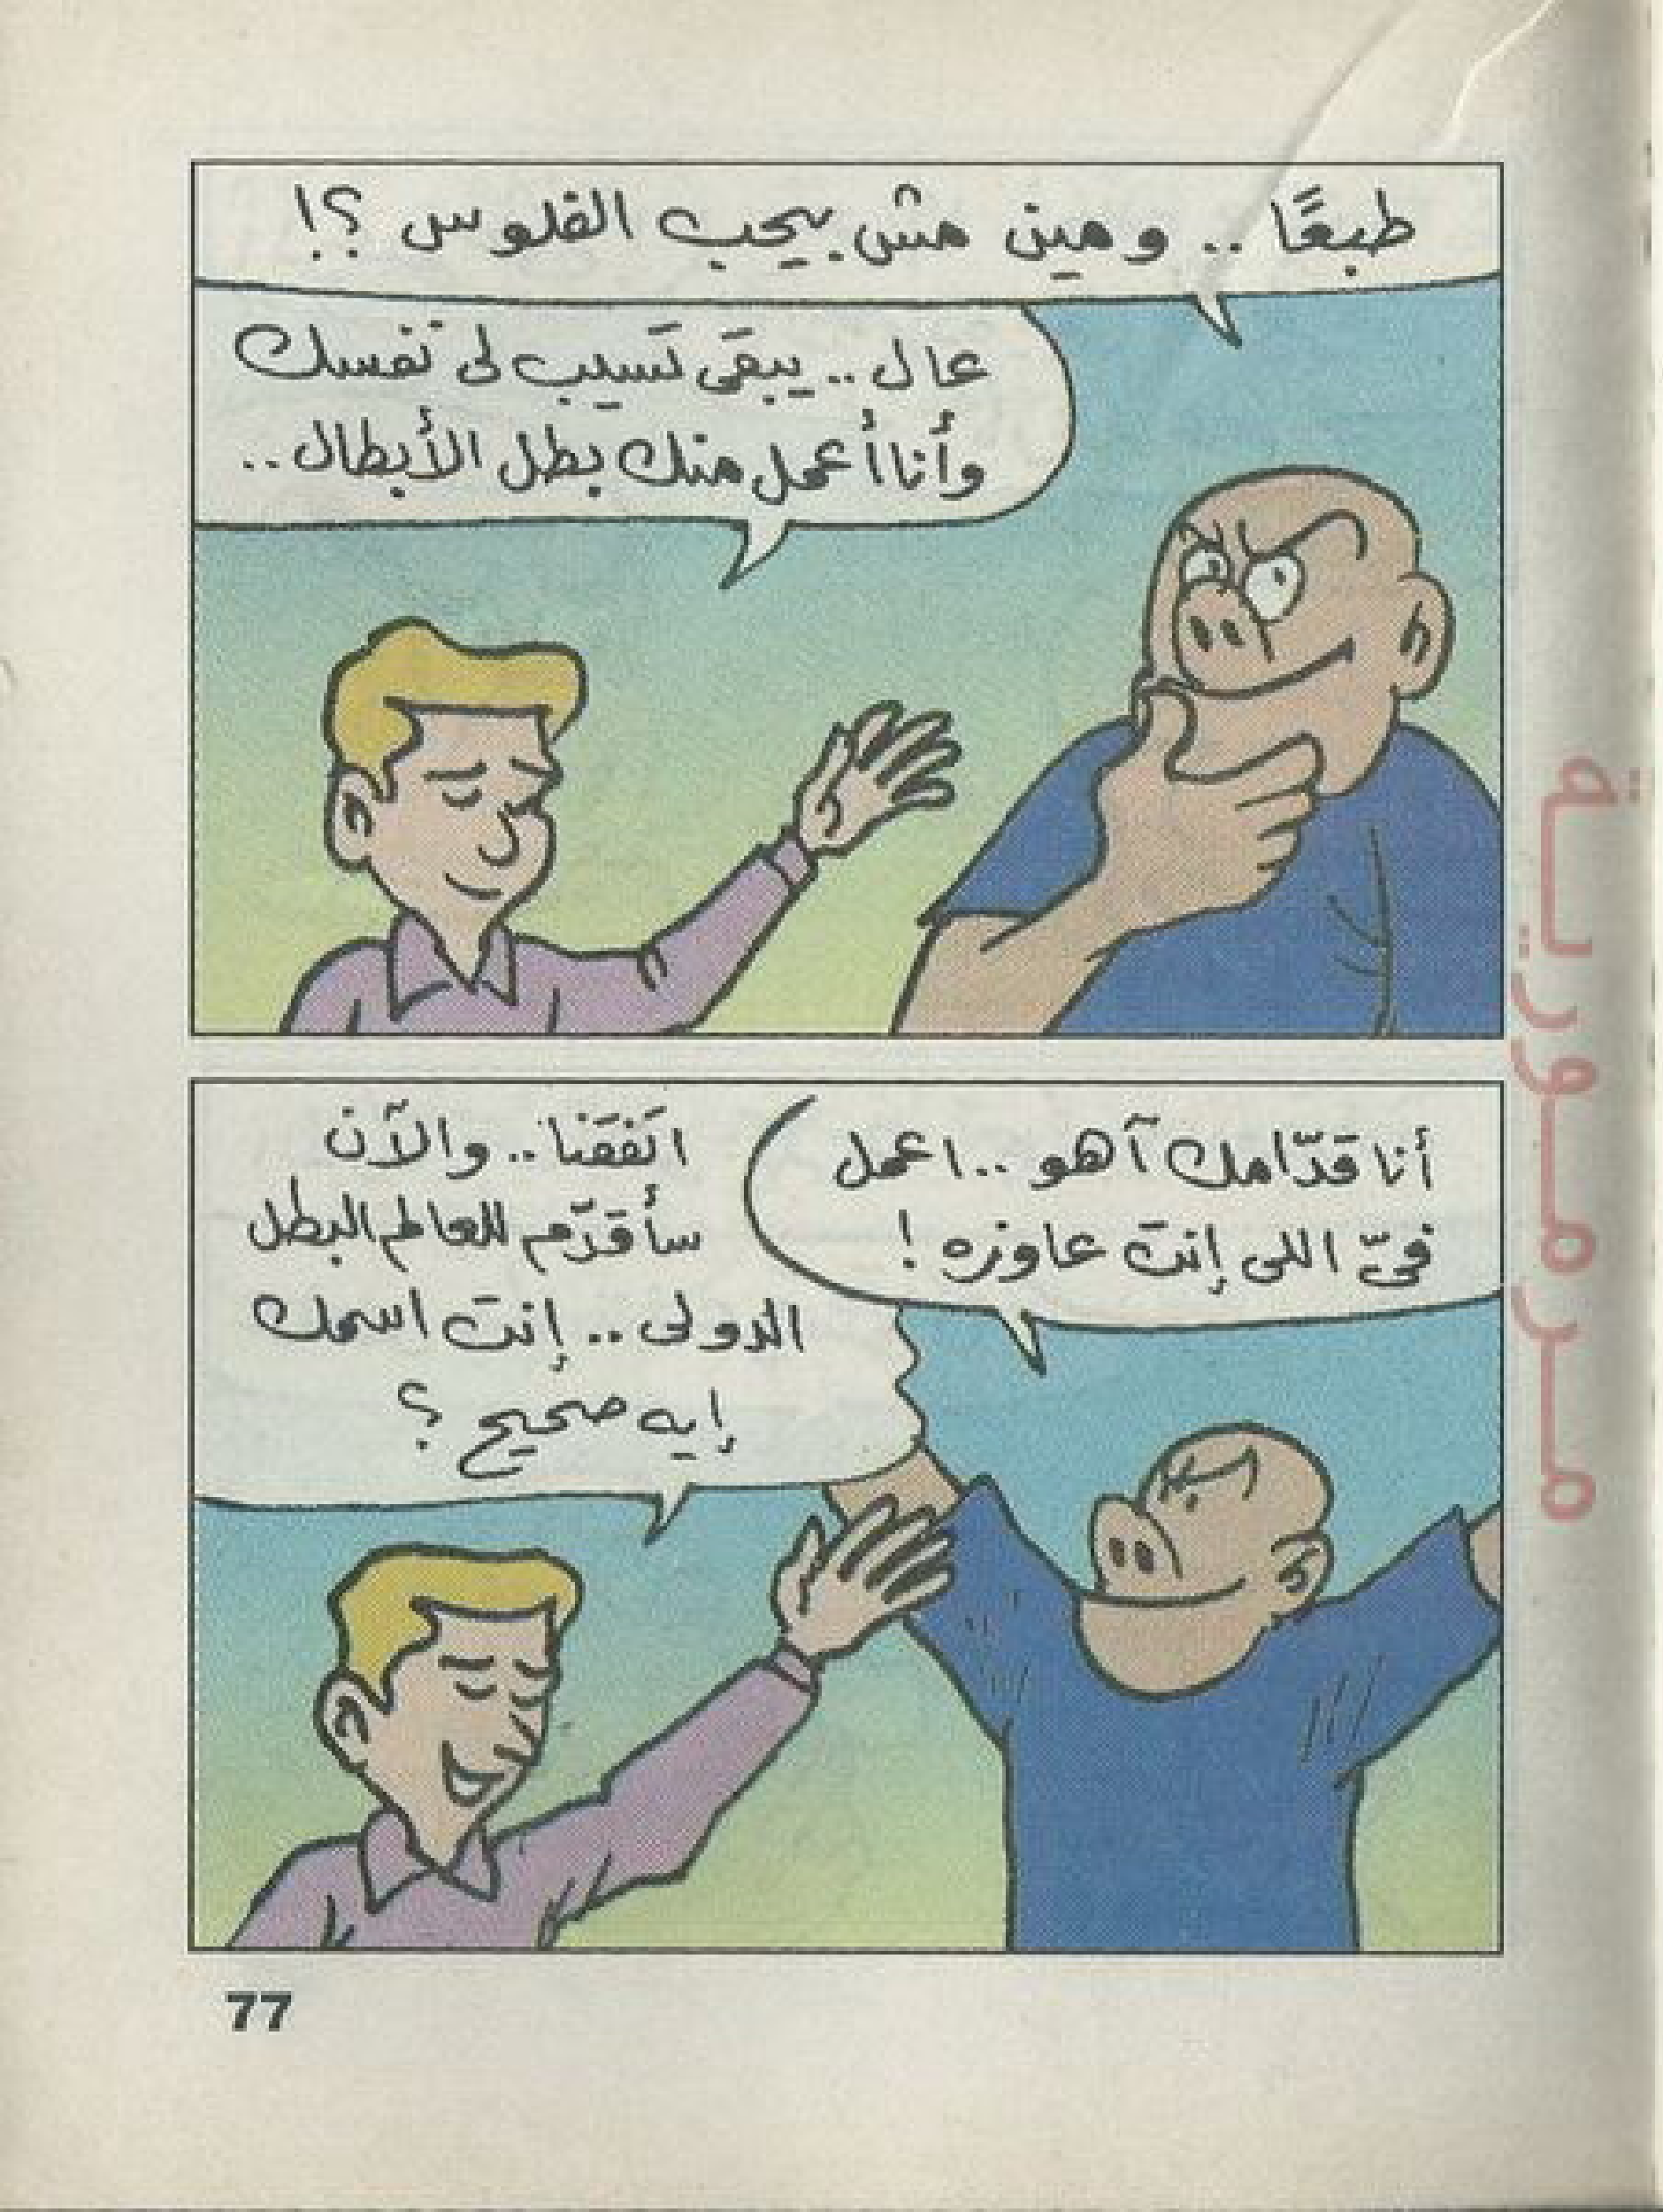 طبعًا .. ومين مش بيحب الفلوس ؟!
عال .. يبقى تَسيب لى نَفسك
وأنا أعمل منك بطل الأبطال ..
أنا قدّامك آهو .. اعمل
فىّ اللى إنت عاوزه !
اتَفَقَنا .. والآن
سأقدّم للعالم البطل
الدولى .. إنت اسمك
إيه صحيح ؟
77
مرمورية